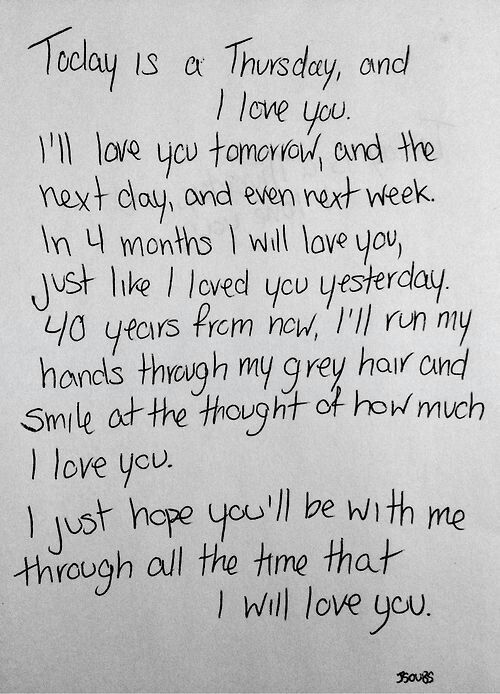 Today is a Thursday, and
I love you.
I'll love you tomorrow, and the
next day, and even next week.
In 4 months I will love you,
just like I loved you yesterday.
40 years from now, I'll run my
hands through my grey hair and
smile at the thought of how much
I love you.
I just hope you'll be with me
through all the time that
I will love you.
JSOUBS